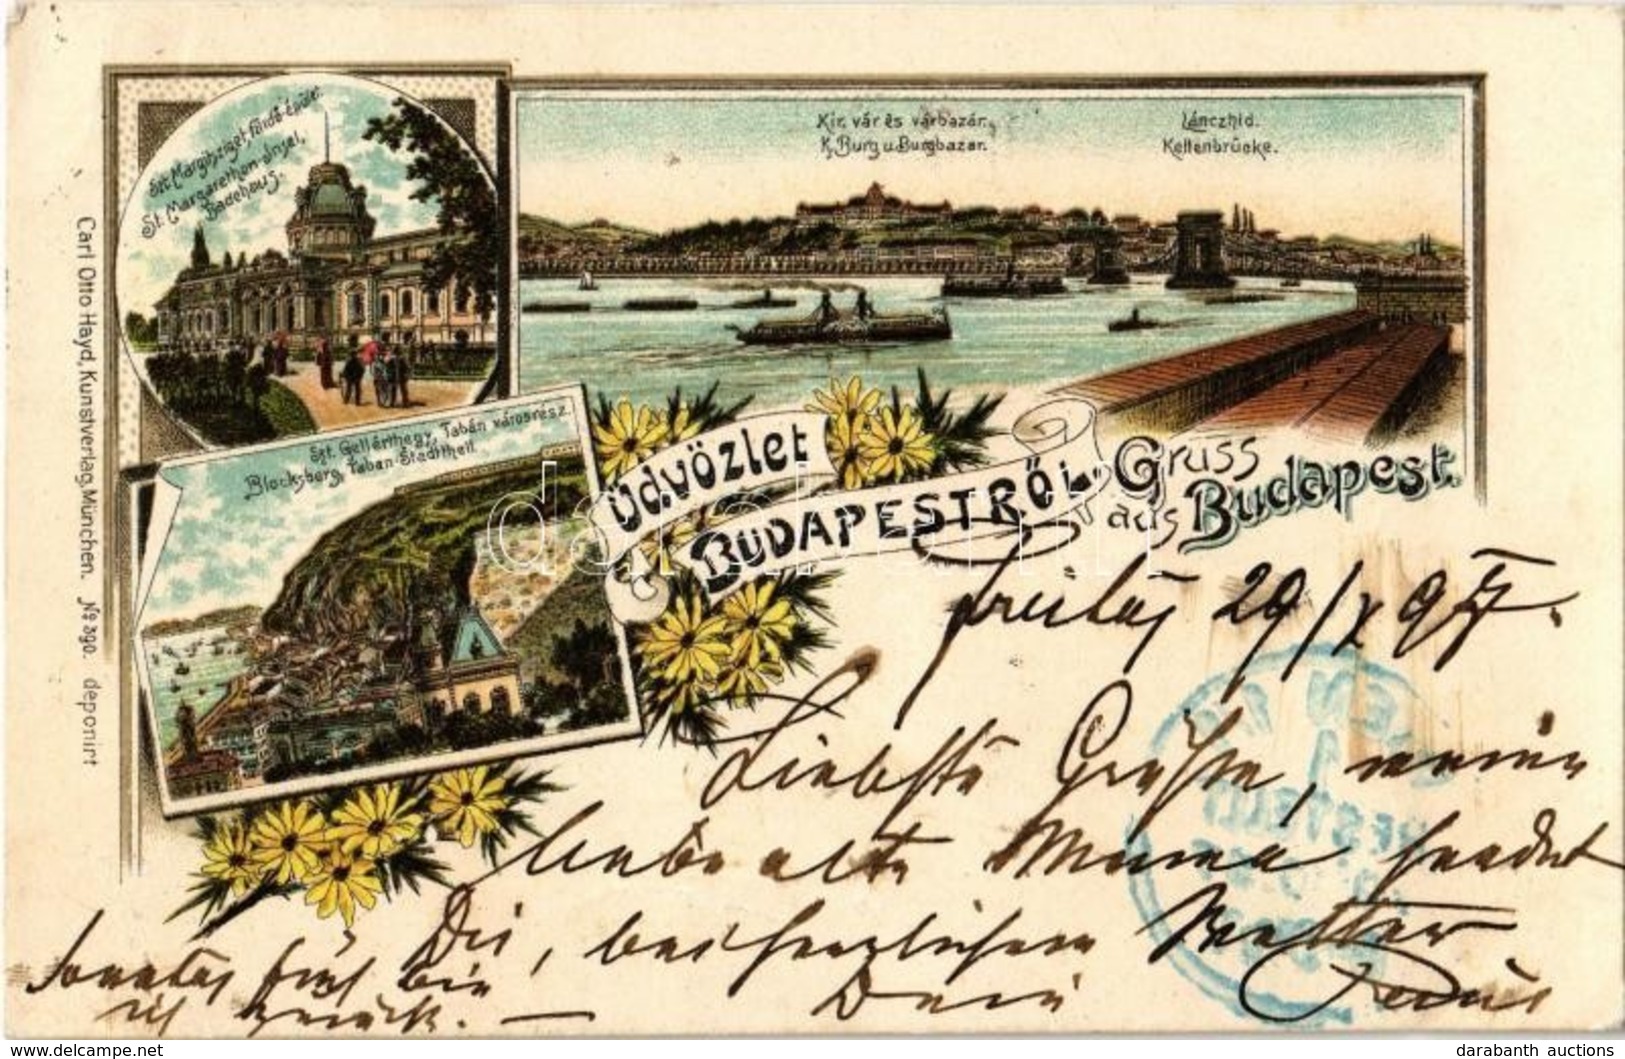 Szt. Margitsziget, fürdő-épület.
St. Margarethen-insel,
Badehaus.
Kir. vár és várbazár.
K. Burg u. Burgbazar.
Lánczhid.
Kettenbrücke.
Szt. Gellérthegy, Tabán városrész.
Blocksberg, Taban-Stadttheil.
Üdvözlet
BUDAPESTRŐL.
Gruss
aus Budapest.
Carl Otto Hayd, Kunstverlag, München. No 390. deponirt
darabanth
Freitag 29/X 97.
Liebste Grüße, meine
liebe alte Mama sendet
Dir, bei herrlichem Wetter
Dein
Sonntag früh bin
ich zurück. —
delcampe.net
darabanth auctions